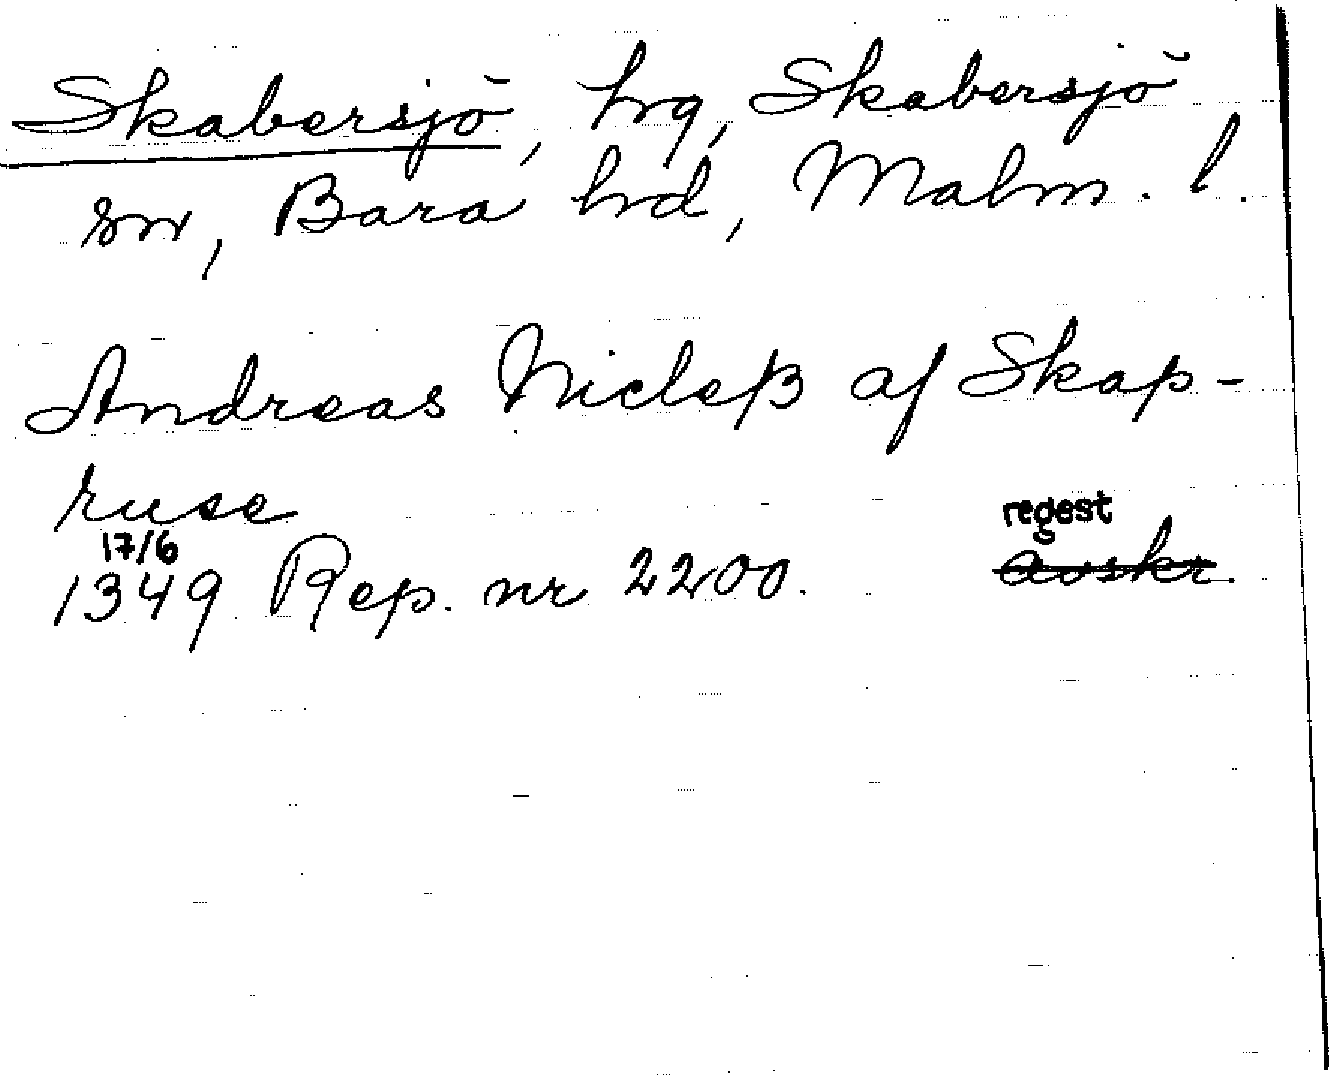 Skabersjö, hrg, Skabersjö
sn, Bara hrd, Malm. l.
Andreas Nicleß af Skap-
ruse
17/6 regest
1349 Rep. nr 2200. avskr.